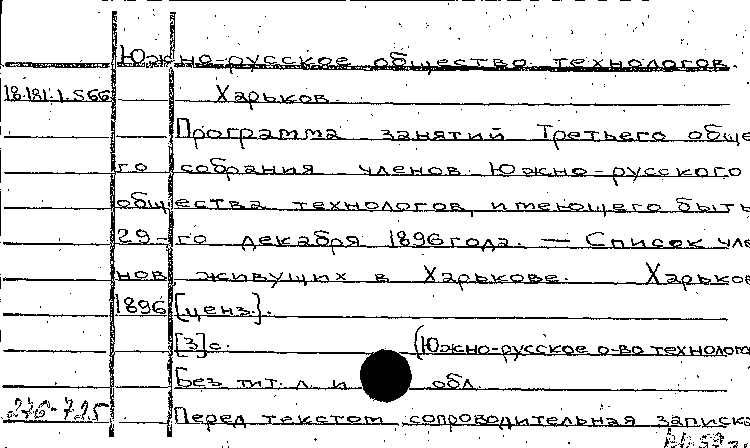 Южно-русское общество технологов.
18.181.1.S66 Харьков.
Программа занятий Третьего обще
го собрания членов Южно-русского
общества технологов, имеющего быть
29-го декабря 1896 года. — Список чле
нов живущих в Харькове. Харьков
1896 [ценз.].
[3]с. (Южно-русское о-во технолог
Без тит. л. и обл.
276-725 Перед текстом сопроводительная записк